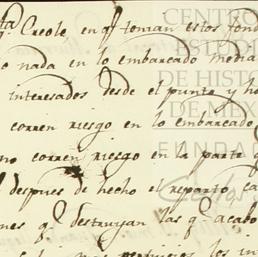 q. Creole en q. tenian estos fond
e nada en lo embarcado media
interesados desde el punto y ho
corren riesgo en lo embarcado
no corren riesgo en la parte q.
despues de hecho el reparto ca
nes q. destruyan las q. acabo
CENTRO
ESTUDI
DE HISTO
DE MEX
FUNDA